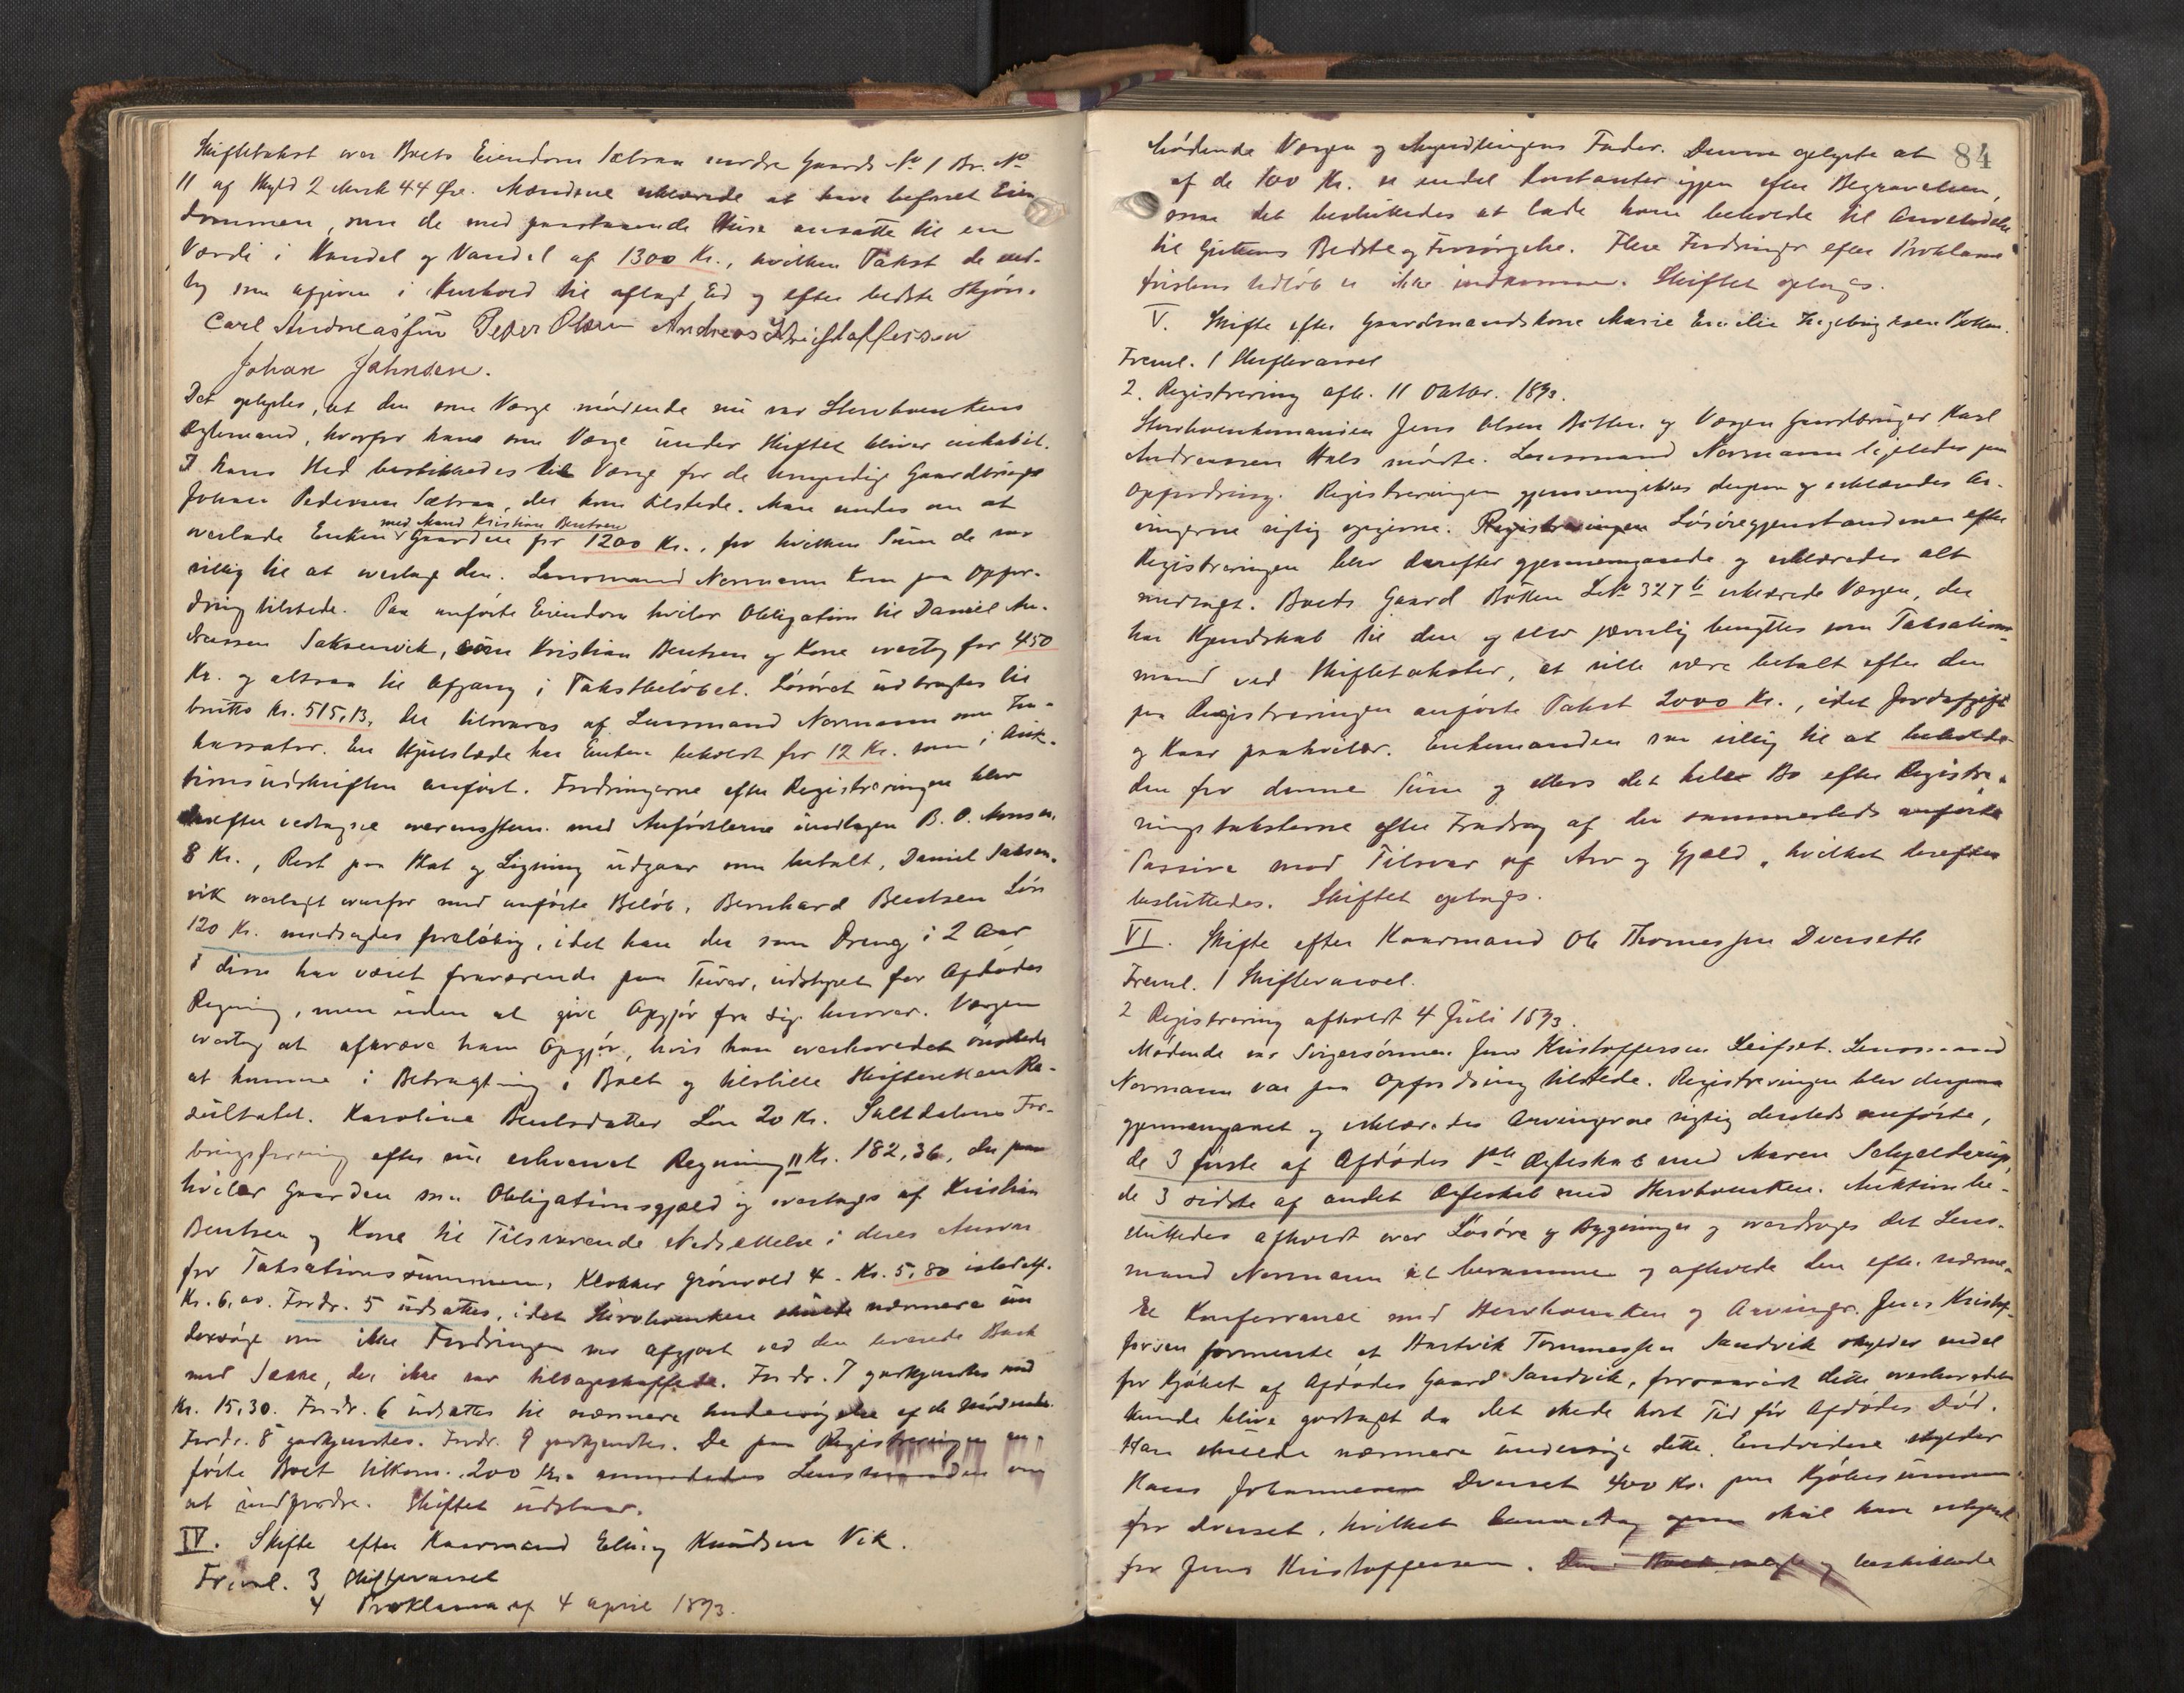 Skiftetakst over Boets Eiendom Sætran nordre Gaards No 1 Br. No
11 af Skyld 2 Mark 44 Øre. Mændene erklærede at have befaret Eien
dommen, som de med paastaaende Huse ansatte til en
Værdi i Handel og Vandel af 1300 Kr., hvilken Takst de ved-
tog som afgiven i Henhold til aflagt Ed og efter bedste Skjøn.
Carl Andreassen Peder Olsen Andreas Kristoffersen
Johan Johnsen.
Det oplystes, at den som Værge mødende nu var Stervboenkens
Ægtemand, hvorfor hans som Værge under Skiftet bliver inhabil.
I hans Sted beskikkedes til Værge for de umyndige Gaardbruger
Johan Pedersen Sætran, der kom tilstede. Man enedes om at
med Mand Kristian Bentsen
overlade Enken Gaarden for 1200 Kr., for hvilken Sum de var
villig til at overtage den. Lensmand Normann kom paa Opfor-
dring tilstede. Paa anførte Eiendom hviler Obligation til Daniel An-
dreassen Saksenvik, som Kristian Bentsen og Kone overtog for 450
Kr. og altsaa til Afgang i Takstbeløbet. Løsøret udbragtes til
brutto Kr. 515,13, der tilsvares af Lensmand Normann som In-
kassator. En Kjørelæde har Enken beholdt for 12 Kr. som i Auk-
tionsudskriften anført. Fordringerne efter Registreringen blev
derefter vedtagne overensstem. med Anførslerne undtagen B. O. Monsen
8 Kr., Rest paa Skat og Ligning udgaar som betalt, Daniel Saksen-
vik overtaget ovenfor med anførte Beløb, Bernhard Bentsen Løn
120 Kr. modsagdes foreløbig, idet han der som Dreng i 2 Aar
i disse har været fraværende paa Turer, udstyret for Afdødes
Regning, men uden at give Opgjør fra sig herover. Værgen
overtog at afkræve ham Opgjør, hvis han overhovedet ønskede
at komme i Betragtning i Boet og tilstille Skifteretten Re-
sultatet. Karoline Bentsdatter Løn 20 Kr. Saltdalens For-
brugsforening efter nu erhvervet Regning Kr. 182,36, der paa
hviler Gaarden som Obligationsgjæld og overtages af Kristian
Bentsen og Kone til Tilsvarende Nedsættelse i deres Ansvar
for Taksationssummen, Klokker Grønvold 4 - Kr. 5,80 istedetf.
Kr. 6,00. Fordr. 5 udsattes, idet Stervboenken skulde nærmere un
dersøge om ikke Fordringen var afgjort ved den leverede Baad
med Sække, der ikke var tilbageskaffede. Fordr. 7 godkjendtes med
Kr. 15,30. Fordr. 6 udsattes til nærmere Undersøgelse af de mødende.
Fordr. 8 godkjendtes. Fordr. 9 godkjendtes. De paa Registreringen an-
førte Boet tilkom. 200 Kr. anmodedes Lensmanden om
at indfordre. Skiftet udstaar.
IV. Skifte efter Kaarmand Elling Knudsen Vik.
Freml. 3 Skiftevarsel
4 Proklama af 4 April 1893.
84
Mødende Værgen og Myndlingens Fader. Denne oplyste at
af de 100 Kr. er endel Kontanter igjen efter Begravelsen,
som det besluttedes at lade ham beholde til Anvendelse
til Guttens Bedste og Forsørgelse. Flere Fordringer efter Proklama
fristens Udløb er ikke indkommen. Skiftet optages.
V. Skifte efter Gaardmandskone Marie Emilie Ingebrigtsen Botten.
Freml. 1 Skiftevarsel
2. Registrering afh. 11 Oktbr. 1893.
Stervboenkemanden Jens Olsen Botten og Værgen Gaardbruger Karl
Andreassen Hals mødte. Lensmand Normann ligeledes paa
Opfordring. Registreringen gjennemgikkes derpaa og erklæredes Ar-
vingerne rigtig opgivne. Registreringen Løsøregjenstandene efter
Registreringen blev derefter gjennemgaaede og erklæredes alt
medtaget. Boets Gaard Botten LNo 327 b erklærede Værgen, der
har Kjendskab til den og selv jevnlig benyttes som Taksations-
mand ved Skiftetakster, at ville være betalt efter den
paa Registreringen anførte Takst 2000 Kr., idet Jordafgift
og Kaar paahviler. Enkemanden var villig til at beholde
den for denne Sum og ellers det hele Bo efter Registre-
ringstaksterne efter Fradrag af de sammesteds anførte
Passiva mod Tilsvar af Arv og Gjæld, hvilket derefter
besluttedes. Skiftet optages.
VI. Skifte efter Kaarmand Ole Thomessen Dverseth
Freml. 1 Skiftevarsel.
2 Registrering afholdt 4 Juli 1893.
Mødende var Svigersønnen Jens Kristoffersen Leifset. Lensmand
Normann var paa Opfordring tilstede. Registreringen blev derpaa
gjennemgaaet og erklæredes Arvingerne rigtig dersteds anførte,
de 3 første af Afdødes 1ste Ægteskab med Maren Schjelderup,
de 3 sidste af andet Ægteskab med Stervboenken. Auktion be-
sluttedes afholdt over Løsøre og Bygninger og overdroges det Lens-
mand Normann at beramme og afholde den efter nærme-
re Konferrance med Stervboenken og Arvinger. Jens Kristof-
fersen formente at Hartvik Tommessen Sandvik skylder endel
for Kjøbet af Afdødes Gaard Sandvik, forsaavidt dette overhovedet
kunde blive godtaget da det skede kort Tid før Afdødes Død.
Han skulde nærmere undersøge dette. Endvidere skylder
Hans Johannesen Dverset 400 Kr. paa Kjøbesummen
for Dverset, hvilket skal have erkjendt
for Jens Kristoffersen. beskikkede